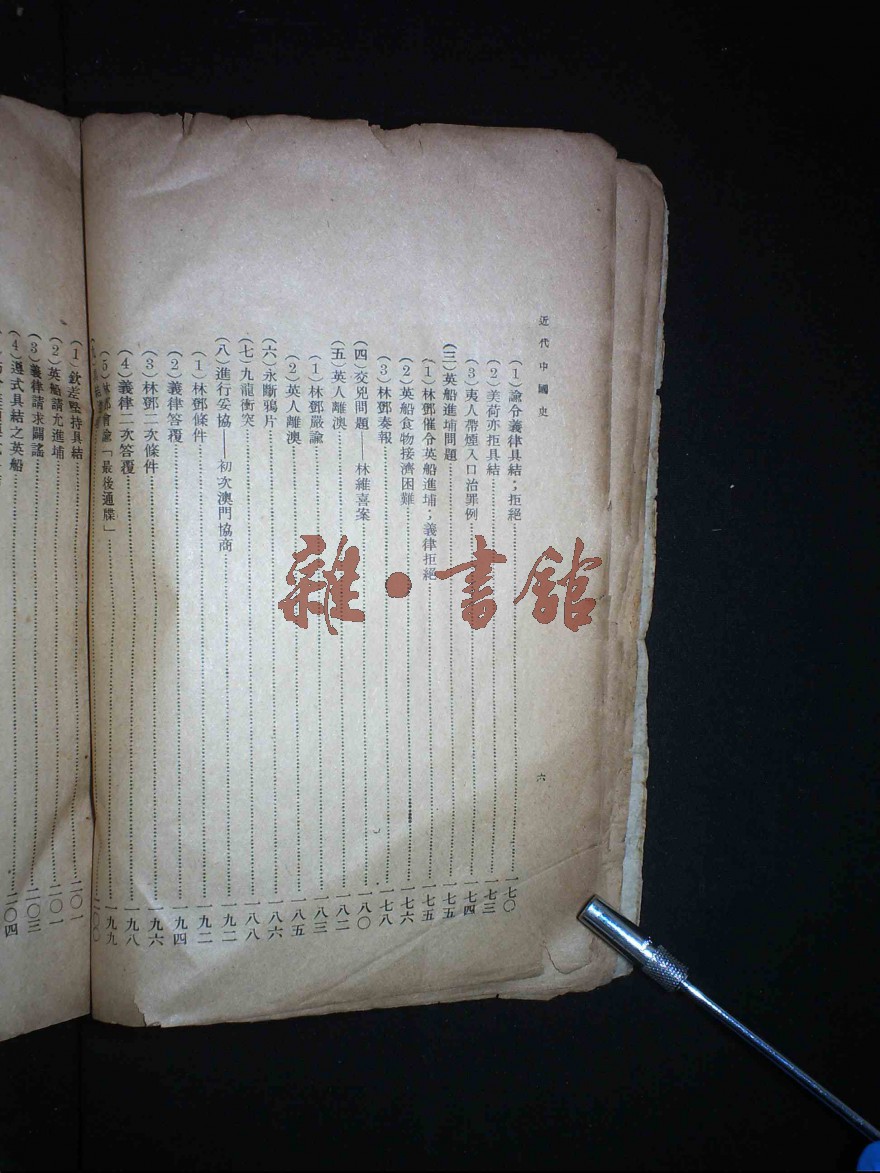 近代中國史
六
(1)諭令義律具結；拒絕……一七〇
(2)美荷亦拒具結……一七三
(3)夷人帶煙入口治罪例……一七四
(三)英船進埔問題……一七五
(1)林鄧催令英船進埔；義律拒絕……一七五
(2)英船食物接濟困難……一七六
(3)林鄧奏報……一七八
(四)交兇問題——林維喜案……一八〇
(五)英人離澳……一八二
(1)林鄧嚴諭……一八三
(2)英人離澳……一八五
(六)永斷鴉片……一八六
(七)九龍衝突……一八八
(八)進行妥協——初次澳門協商……一九二
(1)林鄧條件……一九二
(2)義律答覆……一九四
(3)林鄧二次條件……一九六
(4)義律二次答覆……一九八
(5)林鄧會諭「最後通牒」……一九九
二〇〇
(1)欽差堅持具結……二〇一
(2)英船請允進埔……二〇一
(3)義律請求闢謠……二〇三
(4)遵式具結之英船……二〇四
雜·書館